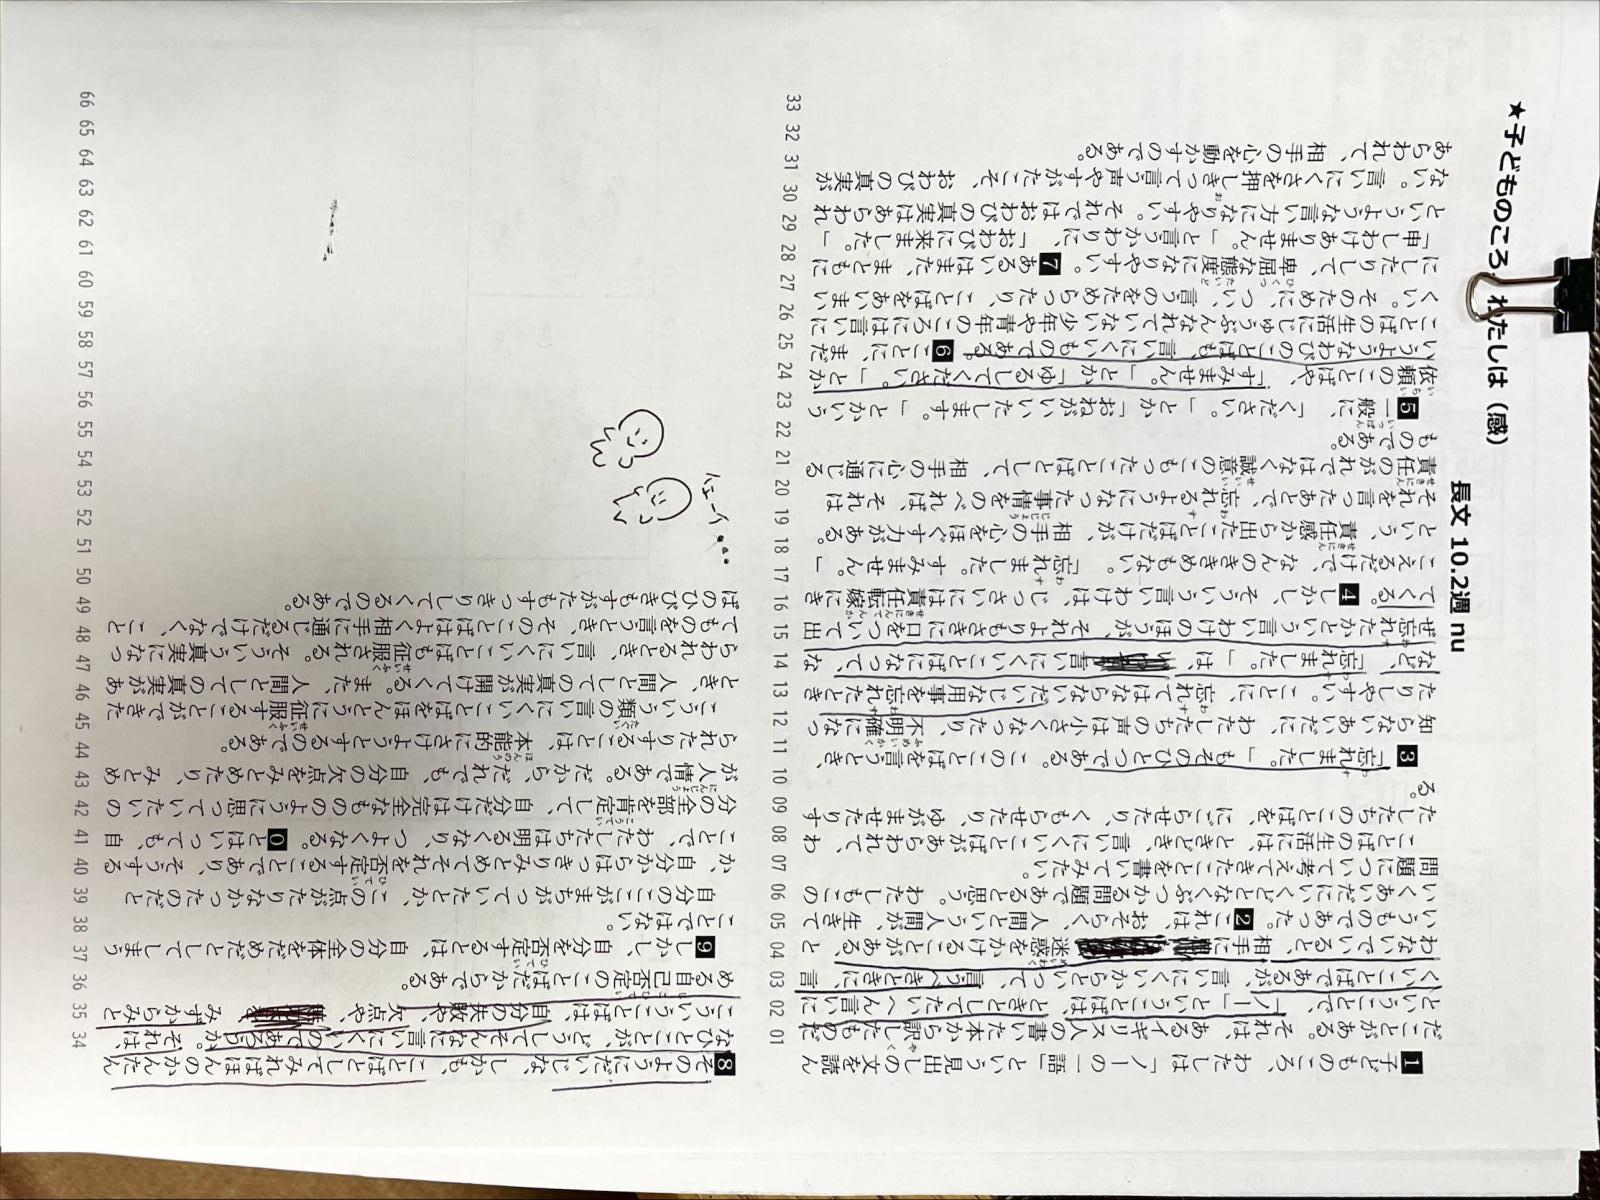 ★子どものころ、わたしは（感）
長文 10.2週 nu
1子どものころ、わたしは「ノーの一語」という見出しの文を読ん
だことがある。それは、あるイギリス人の書いた本から訳したものだ
ということで、「ノー」ということばは、ときとしてたいへん言いに
くいことばであるが、言いにくいからといって、言うべきときに、言
わないでいると、相手に迷惑をかけることがある、と
いうものであった。2これは、おそらく、人間という人間が、生きて
いくあいだにいくどとなくぶつかる問題であると思う。わたしもこの
問題について考えてきたことを書いてみたい。
ことばの生活には、ときどき、言いにくいことばがあらわれて、わ
たしたちのことばを、にごらせたり、くもらせたり、ゆがませたりす
る。
3「忘れました。」もそのひとつである。このことばを言うとき、
知らないあいだに、わたしたちの声は小さくなったり、不明確になっ
たりしやすい。ことに、忘れてはならないだいじな用事を忘れたとき
など、「忘れました。」は、言いにくいことばになって、な
ぜ忘れたかという言いわけのほうが、それよりもさきに口をついて出
てくる。4しかし、そういう言いわけは、じっさいには責任転嫁にき
こえるだけで、なんのききめもない。「忘れました。すみません。」
という、責任感から出たことばだけが、相手の心をほぐす力がある。
それを言ったあとで、忘れるようになった事情をのべれば、それは
責任のがれではなく誠意のこもったことばとして、相手の心に通じる
ものである。
5一般に、「ください。」とか「おねがいいたします。」とかいう
依頼のことばや、「すみません。」とか「ゆるしてください。」とか
いうようなわびのことばも、言いにくいものである。6ことに、まだ
ことばの生活にじゅうぶんなれていない少年や青年のころには言いに
くい。そのために、つい、言うのをためらったり、ことばをあいまい
にしたりして、卑屈な態度になりやすい。7あるいはまた、まともに
「申しわけありません。」と言うかわりに、「おわびに来ました。」
というような言い方になりやすい。それではおわびの真実はあらわれ
ない。言いにくさを押しきって言う声やすがたにこそ、おわびの真実が
あらわれて、相手の心を動かすのである。
01 02 03 04 05 06 07 08 09 10 11 12 13 14 15 16 17 18 19 20 21 22 23 24 25 26 27 28 29 30 31 32 33
8そのようにだいじな、しかも、ことばとしてみればほんのかんたん
なひとことが、どうしてそんなに言いにくいのであろうか。それは、
こういうことばは、自分の失敗や、欠点や、みずからみと
める自己否定のことばだからである。
9しかし、自分を否定するとは、自分の全体をだめだとしてしまう
ことではない。
自分のここがまちがっていたとか、この点がたりなかったとかだと
か、自分からはっきりみとめてそれを否定することであり、そうする
ことで、わたしたちは明るくなり、つよくなる。0とはいっても、自
分の全部を肯定して、自分だけは完全なもののように思っていたいの
が人情である。だから、だれでも、自分の欠点をみとめたり、みとめ
られたりすることは、本能的にさけようとするのである。
こういう類の言いにくいことばをほんとうに征服することができた
とき、人間としての真実が開けてくる。また、人間としての真実があ
られるとき、言いにくいことばも征服される。そういう真実になっ
てものを言うとき、そのことばはよく相手に通じるだけでなく、こと
ばのひびきもすがたもすっきりしてくるのである。
34 35 36 37 38 39 40 41 42 43 44 45 46 47 48 49 50 51 52 53 54 55 56 57 58 59 60 61 62 63 64 65 66